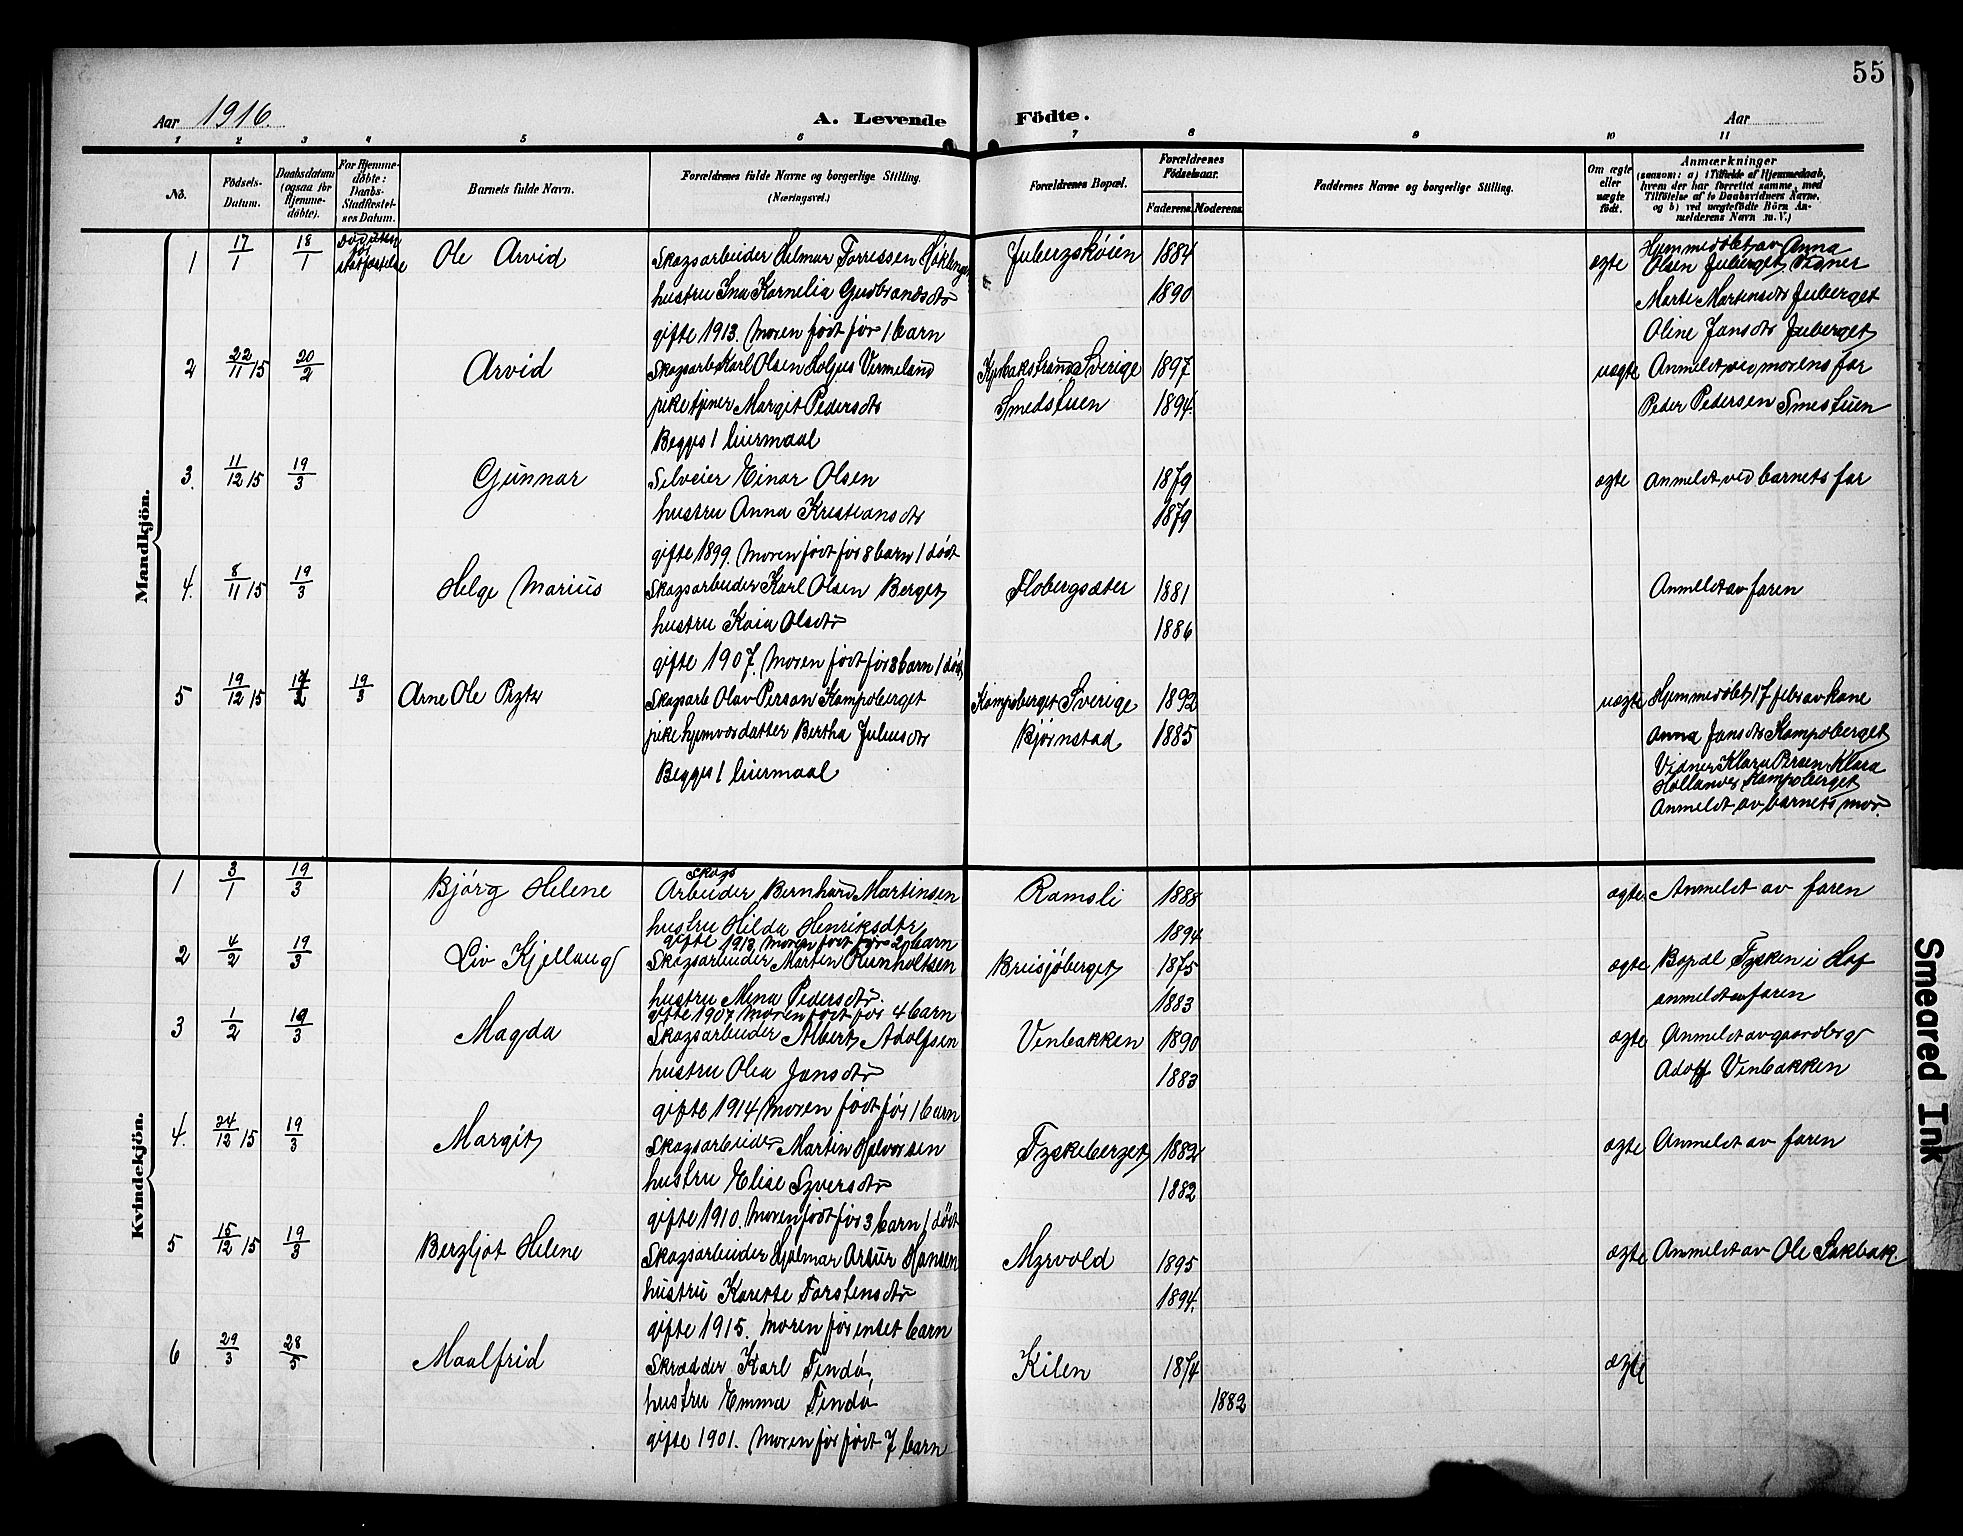 55
Aar 1916. A. Levende Födte. Aar
1 2 3 4 5 6 7 8 9 10 11
No.
Födsels-Datum.
Daabsdatum (ogsaa for Hjemme-döbte).
For Hjemme-döbte: Daabs-Stadfæstel-ses Datum.
Barnets fulde Navn.
Forældrenes fulde Navne og borgerlige Stilling. (Næringsvei.)
Forældrenes Bopæl.
Forældrenes Födselsaar.
Faderens. Moderens.
Faddernes Navne og borgerlige Stilling.
Om ægte eller uægte födt.
Anmærkninger
(saasom: a) i Tilfælde af Hjemmedaab, hvem der har forrettet samme, med Tilföielse af to Daabsvidners Navne, og b) ved uægtefödte Börn An-melderens Navn m. V.)
Mandkjön.
1 17/1 18/1 Død uten stadfæstelse Ole Arvid Skogsarbeider Hilmar Torrissen Jubergskøien 1884 ægte Hjemmedøbt av Anna
Olsen Juberget Vidner
hustru Ina Kornelia Gudbrandsdtr 1890 Marte Martensdtr Juberget
gifte 1913. Moren født før 1 barn Oline Jansdtr Juberget
2 22/11 15 20/2 Arvid Skogsarb Karl Olsen Holjes Vermeland Sverige 1897 uægte Anmeldt ved morens far
pike tjener Margit Pedersdtr Smedstuen 1894 Peder Pedersen Smestuen
Begges 1 leiermaal
3. 11/12 15 19/3 Gunnar Selveier Einar Olsen 1879 ægte Anmeldt ved barnets far
hustru Anna Kristiansdtr 1879
gifte 1899. Moren født før 8 barn 1 dødt
4. 8/11 15 19/3 Helge Marius Skogsarbeider Karl Olsen Berget Flobergsæter 1881 Anmeldt av faren
hustru Kaia Olsdtr 1886
gifte 1907. Moren født før 3 barn 1 død
5 19/12 15 17/2 19/3 Arne Ole Skogsarb Olav Person Kampoberget Kampoberget Sverige 1892 uægte Hjemmedøbt 17 febr av kone
pike hjemværdatter Bertha Juliusdtr Bjørnstad 1885 Anna Jansdtr Kampoberget
Begges 1 leiermaal Vidner Klara Persen Klara
Hollander Kampoberget
Anmeldt av barnets mor.
Kvindekjön.
1 3/1 19/3 Bjørg Helene Skogs Arbeider Bernhard Martinsen Ramsli 1888 ægte Anmeldt av faren
hustru Hilda Henriksdtr 1894
gifte 1913 Moren født før 2 barn
2 4/2 19/3 Liv Kjellaug Skogsarbeider Martin Runholtsen Breisjøberget 1875 ægte Bopæl Fysken i Hof
hustru Mina Pedersdtr. 1883 anmeldt av faren
gifte 1907 Moren født før 4 barn
3 1/2 19/3 Magda Skogsarbeider Albert Adolfsen Vinbakken 1890 ægte Anmeldt av gaardbrg
hustru Olea Jansdtr 1883 Adolf Vinbakken
gifte 1914 Moren født før 1 barn
4. 24/12 15 19/3 Margit Skogsarbeider Martin Halvorsen Tyskeberget 1882 ægte Anmeldt av faren
hustru Elise Syversdtr 1882
gifte 1910. Moren født før 3 barn 1 dødt
5 15/12 15 19/3 Bergljot Helene Skogsarbeider Hjalmar Artur Hansen Myrvold 1895 ægte Anmeldt av Ole Sakbak.
hustru Karette Torstensdtr 1894.
gifte 1915. Moren før intet barn
6 29/3 28/5 Maalfrid Skrædder Karl Tindø Kilen 1874 ægte
hustru Emma Tindø 1882
gifte 1901. Moren før født 7 barn
Smeared Ink